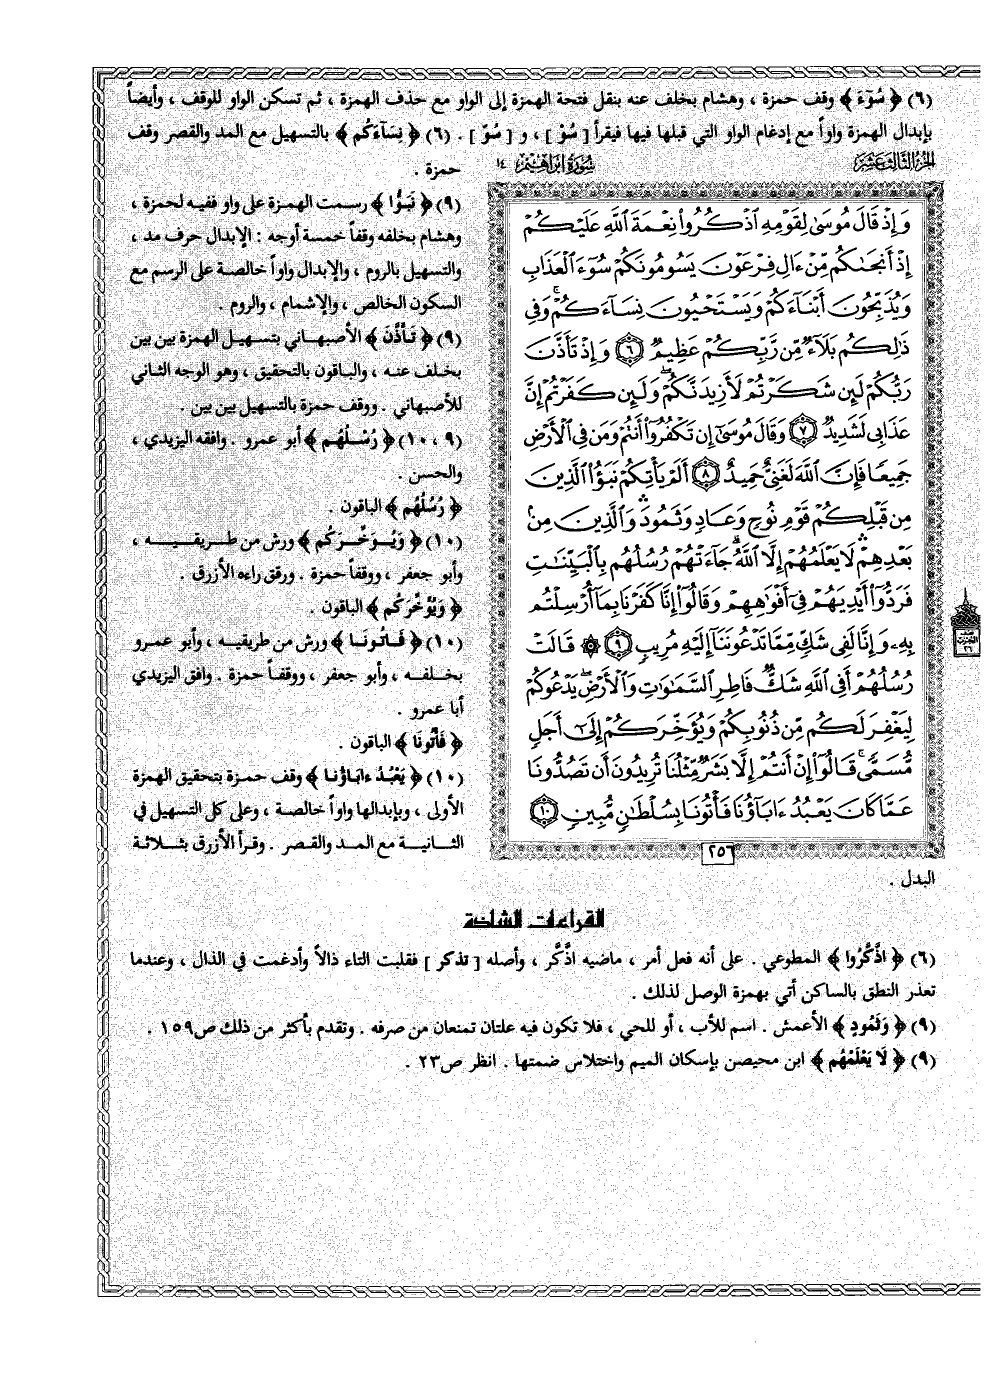 (٦) ﴿ سُوٓءَ ﴾ وقف حمزة ، وهشام بخلف عنه بنقل فتحة الهمزة إلى الواو مع حذف الهمزة ، ثم تسكن الواو للوقف ، وأيضاً
بإبدال الهمزة واواً مع إدغام الواو التي قبلها فيها فيقرأ [ سُوْ ] ، و [ سُوّ ] . (٦) ﴿ نِسَآءَكُم ﴾ بالتسهيل مع المد والقصر وقف
حمزة .
الجزء الثالث عشر
سورة إبراهيم ١٤
وَإِذْ قَالَ مُوسَىٰ لِقَوْمِهِ ٱذْكُرُوا۟ نِعْمَةَ ٱللَّهِ عَلَيْكُمْ
إِذْ أَنجَىٰكُم مِّنْ ءَالِ فِرْعَوْنَ يَسُومُونَكُمْ سُوٓءَ ٱلْعَذَابِ
وَيُذَبِّحُونَ أَبْنَآءَكُمْ وَيَسْتَحْيُونَ نِسَآءَكُمْ ۚ وَفِى
ذَٰلِكُم بَلَآءٌ مِّن رَّبِّكُمْ عَظِيمٌ ٦ وَإِذْ تَأَذَّنَ
رَبُّكُمْ لَئِن شَكَرْتُمْ لَأَزِيدَنَّكُمْ ۖ وَلَئِن كَفَرْتُمْ إِنَّ
عَذَابِى لَشَدِيدٌ ٧ وَقَالَ مُوسَىٰٓ إِن تَكْفُرُوٓا۟ أَنتُمْ وَمَن فِى ٱلْأَرْضِ
جَمِيعًا فَإِنَّ ٱللَّهَ لَغَنِىٌّ حَمِيدٌ ٨ أَلَمْ يَأْتِكُمْ نَبَؤُا۟ ٱلَّذِينَ
مِن قَبْلِكُمْ قَوْمِ نُوحٍ وَعَادٍ وَثَمُودَ ۛ وَٱلَّذِينَ مِنۢ
بَعْدِهِمْ ۛ لَا يَعْلَمُهُمْ إِلَّا ٱللَّهُ ۚ جَآءَتْهُمْ رُسُلُهُم بِٱلْبَيِّنَٰتِ
فَرَدُّوٓا۟ أَيْدِيَهُمْ فِىٓ أَفْوَٰهِهِمْ وَقَالُوٓا۟ إِنَّا كَفَرْنَا بِمَآ أُرْسِلْتُم
بِهِۦ وَإِنَّا لَفِى شَكٍّ مِّمَّا تَدْعُونَنَآ إِلَيْهِ مُرِيبٍ ٩ ۞ قَالَتْ
رُسُلُهُمْ أَفِى ٱللَّهِ شَكٌّ فَاطِرِ ٱلسَّمَٰوَٰتِ وَٱلْأَرْضِ ۖ يَدْعُوكُمْ
لِيَغْفِرَ لَكُم مِّن ذُنُوبِكُمْ وَيُؤَخِّرَكُمْ إِلَىٰٓ أَجَلٍ
مُّسَمًّى ۚ قَالُوٓا۟ إِنْ أَنتُمْ إِلَّا بَشَرٌ مِّثْلُنَا تُرِيدُونَ أَن تَصُدُّونَا
عَمَّا كَانَ يَعْبُدُ ءَابَآؤُنَا فَأْتُونَا بِسُلْطَٰنٍ مُّبِينٍ ١٠
٢٥٦
(٩) ﴿ نَبَؤُا ﴾ رسمت الهمزة على واو ففيه لحمزة ،
وهشام بخلفه وقفاً خمسة أوجه : الإبدال حرف مد ،
والتسهيل بالروم ، والإبدال واواً خالصة على الرسم مع
السكون الخالص ، والإشمام ، والروم .
(٩) ﴿ تَـأَذَّنَ ﴾ الأصبهاني بتسهيل الهمزة بين بين
بخلف عنه ، والباقون بالتحقيق ، وهو الوجه الثاني
للأصبهاني . ووقف حمزة بالتسهيل بين بين .
(٩ ، ١٠) ﴿ رُسْلُهُم ﴾ أبو عمرو . وافقه اليزيدي ،
والحسن .
﴿ رُسُلُهُم ﴾ الباقون .
(١٠) ﴿ وَيُـوَخِّرَكُم ﴾ ورش من طريقيه ،
وأبو جعفر ، ووقفاً حمزة . ورقق راءه الأزرق .
﴿ وَيُؤَخِّرَكُم ﴾ الباقون .
(١٠) ﴿ فَـاتُونَـا ﴾ ورش من طريقيه ، وأبو عمرو
بخلفه ، وأبو جعفر ، ووقفاً حمزة . وافق اليزيدي
أبا عمرو .
﴿ فَأْتُونَا ﴾ الباقون .
(١٠) ﴿ يَعْبُدُ ءَابَاؤُنَا ﴾ وقف حمزة بتحقيق الهمزة
الأولى ، وبإبدالها واواً خالصة ، وعلى كل التسهيل في
الثانية مع المد والقصر . وقرأ الأزرق بثلاثة
البدل .
القراءات الشاذة
(٦) ﴿ اذَّكَّرُوا ﴾ المطوعي . على أنه فعل أمر ، ماضيه اذَّكَّر ، وأصله [ تذكر ] فقلبت التاء ذالاً وأدغمت في الذال ، وعندما
تعذر النطق بالساكن أتي بهمزة الوصل لذلك .
(٩) ﴿ وَثَمُودٍ ﴾ الأعمش . اسم للأب ، أو للحي ، فلا تكون فيه علتان تمنعان من صرفه . وتقدم بأكثر من ذلك ص١٥٩ .
(٩) ﴿ لَا يَعْلَمْهُم ﴾ ابن محيصن بإسكان الميم واختلاس ضمتها . انظر ص٢٣ .